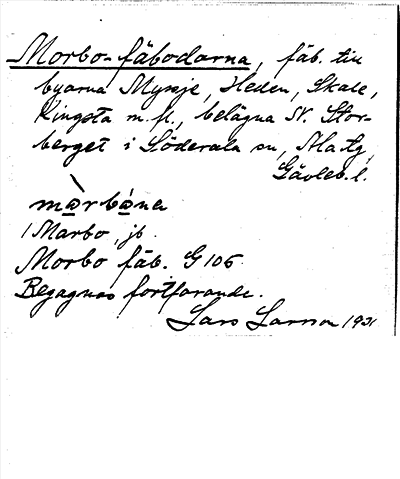 Morbo-fäbodarna, fäb. till
byarna Myssje, Heden, Skale,
Kingsta m.fl., belägna SV. Stor-
berget i Söderala sn,
Gävleb. l.
mårbåna
/ Marbo, jb.
Morbo fäb. G 106
Begagnas fortfarande.
Lars Larsson 1931